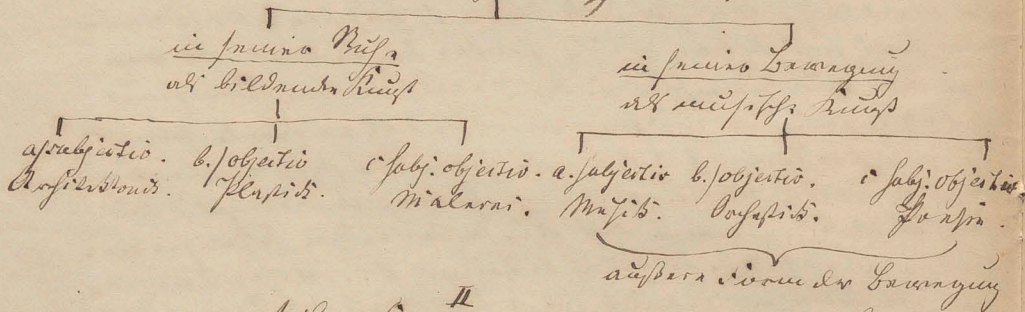 in seiner Ruhe
als bildende Kunst
in seiner Bewegung
als musische Kunst
a) subjectiv.
Architektonik.
b.) objectiv
Plastik.
c) subj. objectiv.
Malerei.
a. subjectiv
Musik.
b.) objectiv.
Orchestik.
c) subj. objectiv
Poesie.
äußere Form der Bewegung
II